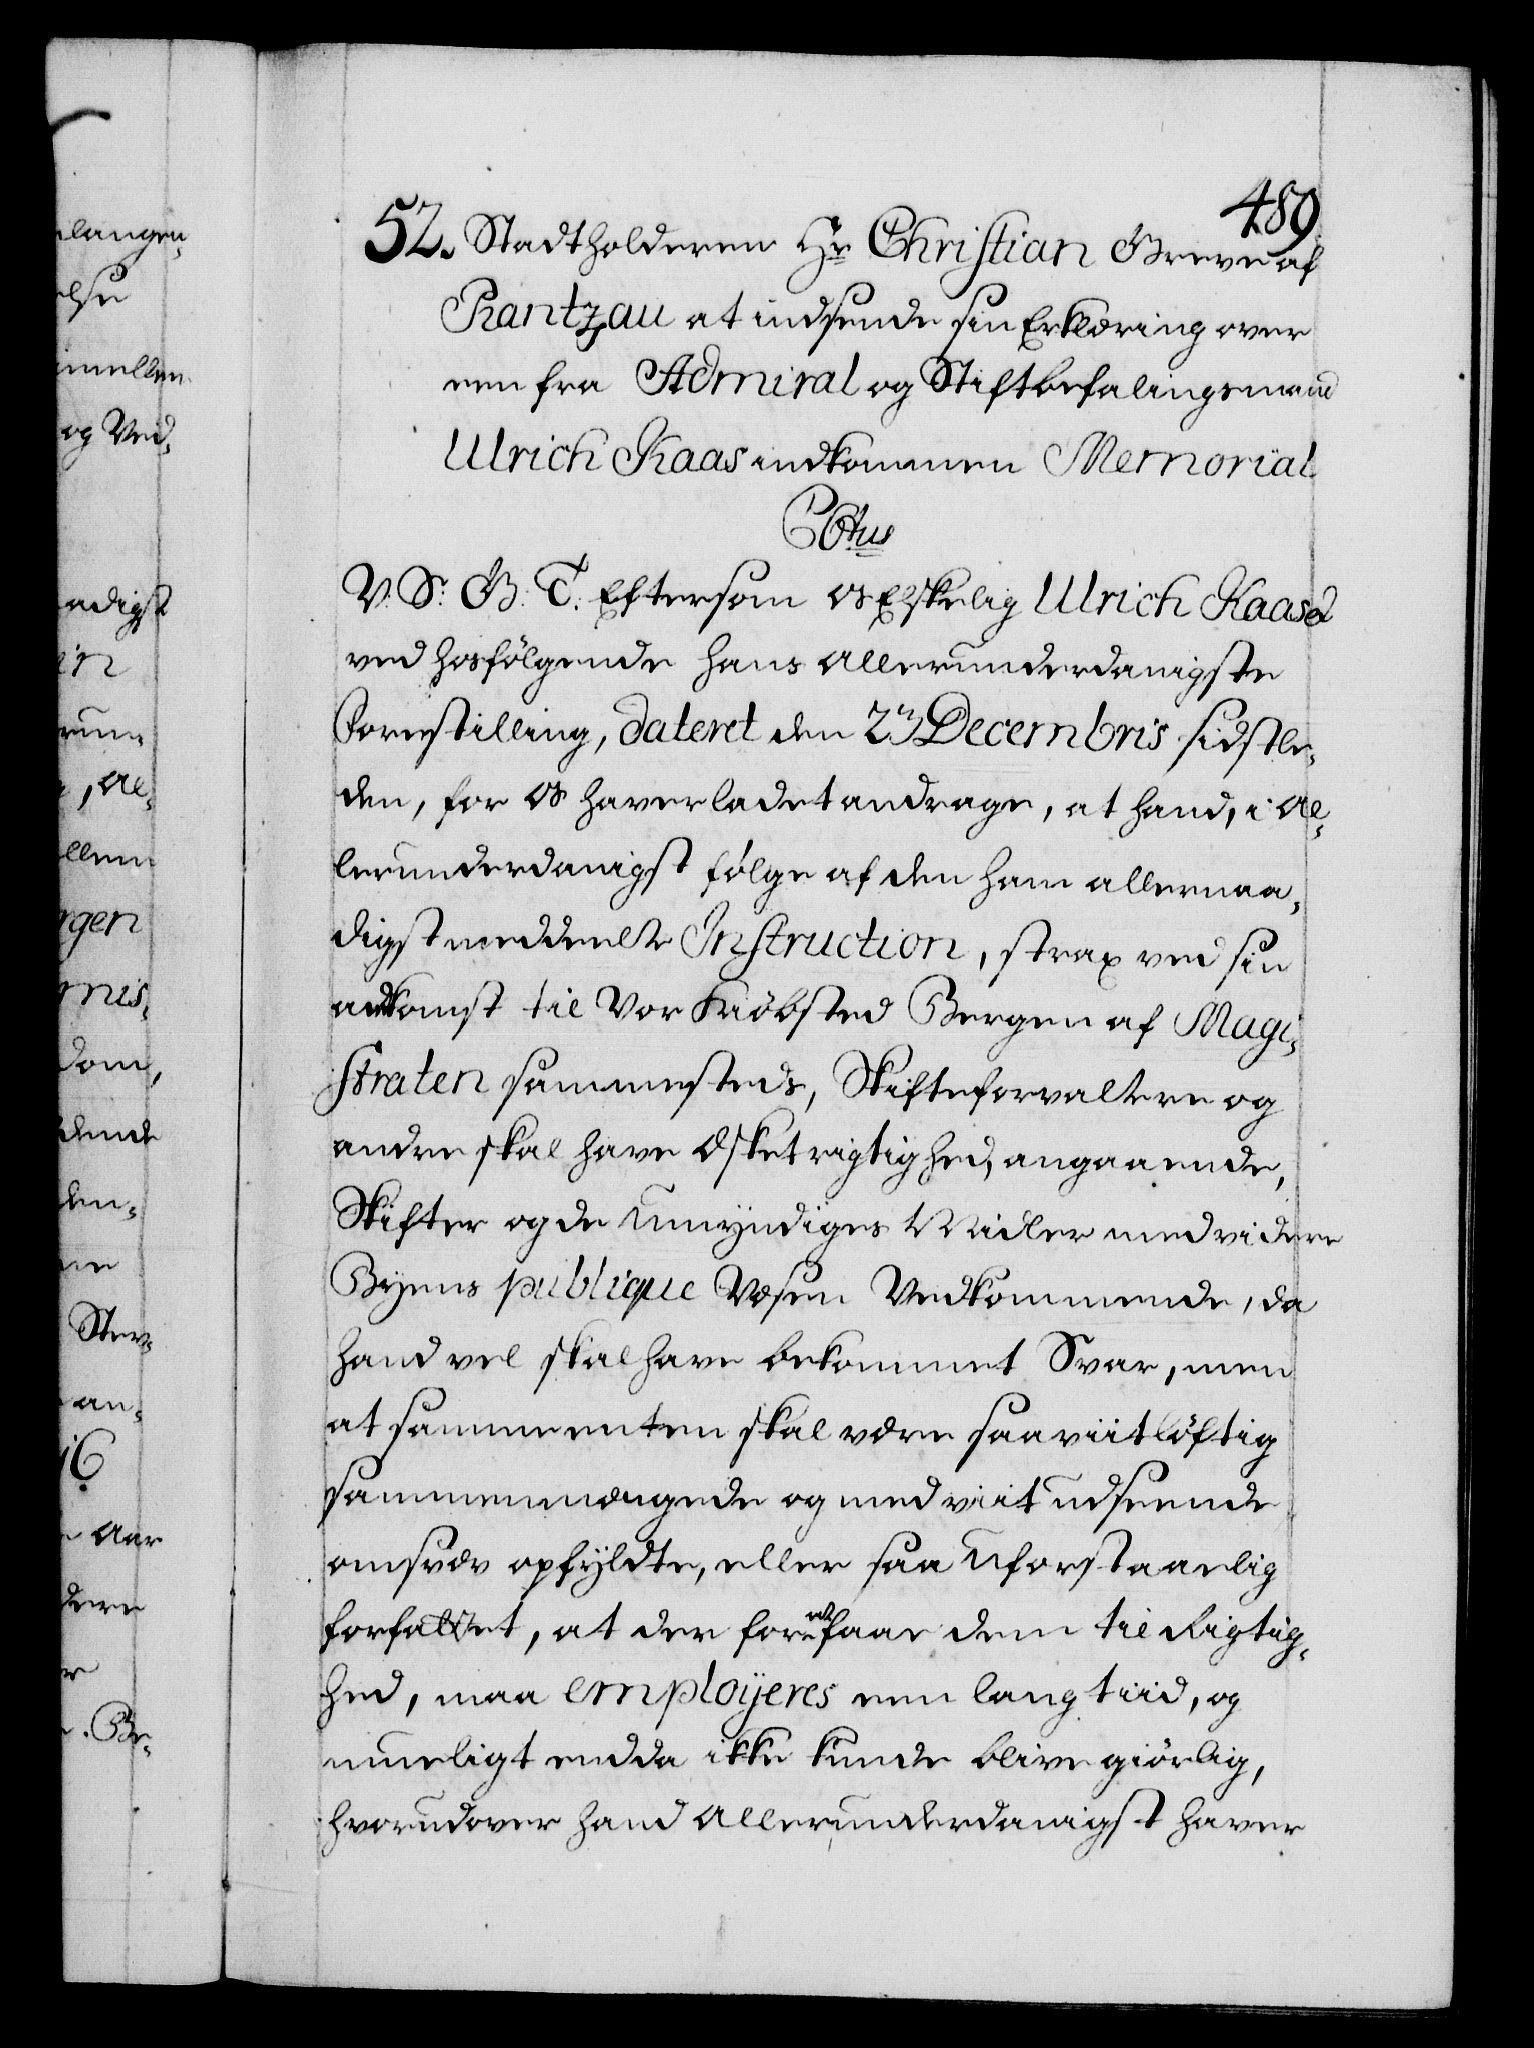 489
52. Stadtholderen Hr Christian Greve af
Rantzau at indsende sin Erklæring over
een fra Admiral og Stiftbefalingsmand
Ulrich Kaas indkommen Memorial
C6tus
V. S. G. T. Eftersom os Elskelig Ulrich Kaas
ved hosfölgende hans allerunderdanigste
Forestilling, dateret den 2n Decembris sidstle-
den, for os haver ladet andrage, at hand, i al-
lerunderdanigst følge af den ham allernaa-
digst meddeelte Instruction, strax ved sin
ankomst til Vor Kiöbsted Bergen af Magi-
straten sammesteds, Skifteforvaltere og
andre skal have æsket rigtighed, angaaende,
Skifter og de Umÿndiges Midler med videre
Byens publique Væsen Vedkommende, da
hand vel skal have bekommet Svar, men
at samme enten skal være saa viitlöftig
sammenmængede og med viit udseende
omsvøv opfÿldte, eller saa Uforstaaelig
forfattet, at der for at faae dem til Rigtig-
hed, maa emploÿeres een lang tiid, og
mueligt endda ikke kunde blive giörlig,
hvorudover hand allerunderdanigst haver
langen-
else
imellem
og Ved-
adigst
in
, al-
llem
rgen
mis-
dom,
dende
den-
ne
Stev-
an-
16
Aar
dere
r
. Be-